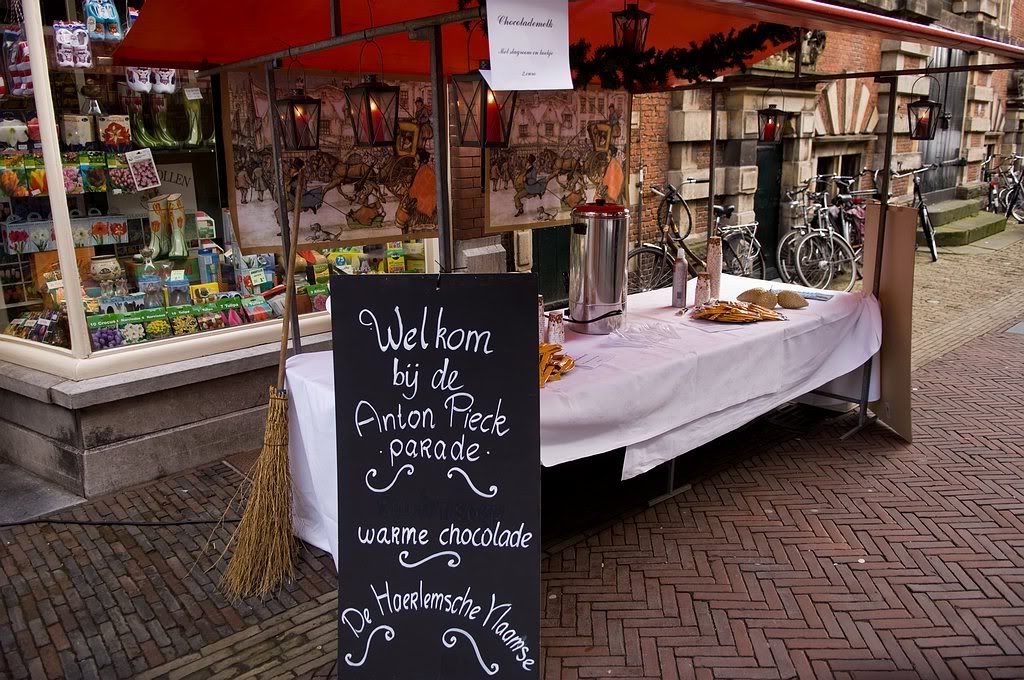 Chocolademelk
Met slagroom en koekje
2 euro
OLLEN
Welkom
bij de
Anton Pieck
parade
warme chocolade
De Haerlemsche Vlaamse